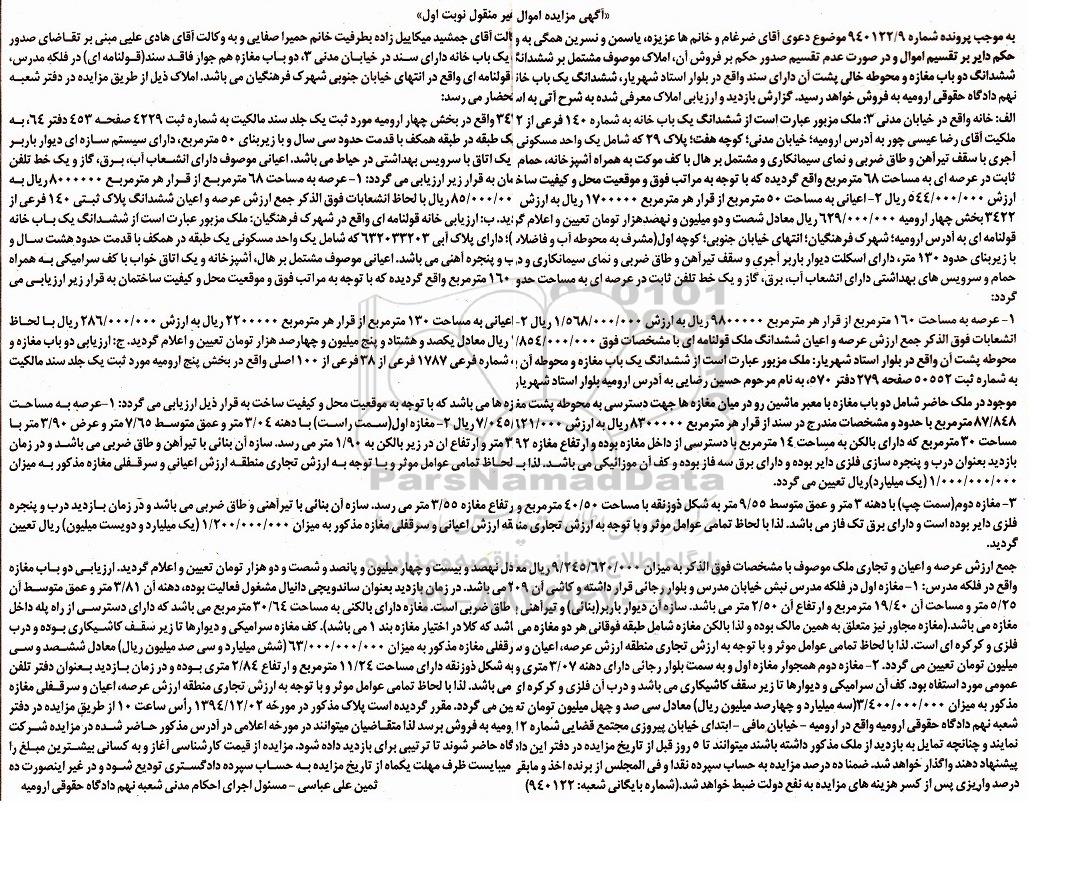 «آگهی مزایده اموال غیر منقول نوبت اول»
به موجب پرونده شماره ۹۴۰۱۲۲/۹ موضوع دعوی آقای ضرغام و خانم ها عزیزه، یاسمن و نسرین همگی به وکالت آقای جمشید میکاییل زاده بطرفیت خانم حمیرا صفایی و به وکالت آقای هادی علیی مبنی بر تقاضای صدور
حکم دایر بر تقسیم اموال و در صورت عدم تقسیم صدور حکم بر فروش آن، املاک موصوف مشتمل بر ششدانگ یک باب خانه دارای سند در خیابان مدنی ۳، دو باب مغازه هم جواز فاقد سند(قولنامه ای) در فلکه مدرس،
ششدانگ دو باب مغازه و محوطه خالی پشت آن دارای سند واقع در بلوار استاد شهریار، ششدانگ یک باب خانه قولنامه ای واقع در انتهای خیابان جنوبی شهرک فرهنگیان می باشد. املاک ذیل از طریق مزایده در دفتر شعبه
نهم دادگاه حقوقی ارومیه به فروش خواهد رسید. گزارش بازدید و ارزیابی املاک معرفی شده به شرح آتی به استحضار می رسد:
الف: خانه واقع در خیابان مدنی ۳: ملک مزبور عبارت است از ششدانگ یک باب خانه به شماره ۱۴۰ فرعی از ۳۴۲۲ واقع در بخش چهار ارومیه مورد ثبت یک جلد سند مالکیت به شماره ثبت ۴۲۲۹ صفحه ۴۵۳ دفتر ۶۴، به
ملکیت آقای رضا عیسی چور به آدرس ارومیه؛ خیابان مدنی؛ کوچه هفت؛ پلاک ۲۹ که شامل یک واحد مسکونی یک طبقه در طبقه همکف با قدمت حدود سی سال و با زیربنای ۵۰ مترمربع، دارای سیستم سازه ای دیوار باربر
آجری با سقف تیرآهن و طاق ضربی و نمای سیمانکاری و مشتمل بر هال با کف موکت به همراه آشپزخانه، حمام یک اتاق با سرویس بهداشتی در حیاط می باشد. اعیانی موصوف دارای انشعاب آب، برق، گاز و یک خط تلفن
ثابت در عرصه ای به مساحت ۶۸ مترمربع واقع گردیده که با توجه به مراتب فوق و موقعیت محل و کیفیت ساختمان به قرار زیر ارزیابی می گردد: ۱- عرصه به مساحت ۶۸ مترمربع از قرار هر مترمربع ۸۰۰۰۰۰۰ ریال به
ارزش ۵۴۴/۰۰۰/۰۰۰ ریال ۲- اعیانی به مساحت ۵۰ مترمربع از قرار هر مترمربع ۱۷۰۰۰۰۰ ریال به ارزش ۸۵/۰۰۰/۰۰۰ ریال با لحاظ انشعابات فوق الذکر جمع ارزش عرصه و اعیان ششدانگ پلاک ثبتی ۱۴۰ فرعی از
۳۴۲۲ بخش چهار ارومیه ۶۲۹/۰۰۰/۰۰۰ ریال معادل شصت و دو میلیون و نهصدهزار تومان تعیین و اعلام گردید. ب: ارزیابی خانه قولنامه ای واقع در شهرک فرهنگیان: ملک مزبور عبارت است از ششدانگ یک باب خانه
قولنامه ای به آدرس ارومیه؛ شهرک فرهنگیان؛ انتهای خیابان جنوبی؛ کوچه اول(مشرف به محوطه آب و فاضلاب)؛ دارای پلاک آبی ۶۳۲۰۳۳۲۰۳ که شامل یک واحد مسکونی یک طبقه در همکف با قدمت حدود هشت سال و
با زیربنای حدود ۱۳۰ متر، دارای اسکلت دیوار باربر آجری و سقف تیرآهن و طاق ضربی و نمای سیمانکاری و درب و پنجره آهنی می باشد. اعیانی موصوف مشتمل بر هال، آشپزخانه و یک اتاق خواب با کف سرامیکی به همراه
حمام و سرویس های بهداشتی دارای انشعاب آب، برق، گاز و یک خط تلفن ثابت در عرصه ای به مساحت حدود ۱۶۰ مترمربع واقع گردیده که با توجه به مراتب فوق و موقعیت محل و کیفیت ساختمان به قرار زیر ارزیابی می
گردد:
۱- عرصه به مساحت ۱۶۰ مترمربع از قرار هر مترمربع ۹۸۰۰۰۰۰ ریال به ارزش ۱/۵۶۸/۰۰۰/۰۰۰ ریال ۲- اعیانی به مساحت ۱۳۰ مترمربع از قرار هر مترمربع ۲۲۰۰۰۰۰ ریال به ارزش ۲۸۶/۰۰۰/۰۰۰ ریال با لحاظ
انشعابات فوق الذکر جمع ارزش عرصه و اعیان ششدانگ ملک قولنامه ای با مشخصات فوق ۱/۸۵۴/۰۰۰/۰۰۰ ریال معادل یکصد و هشتاد و پنج میلیون و چهارصد هزار تومان تعیین و اعلام گردید. ج: ارزیابی دو باب مغازه و
محوطه پشت آن واقع در بلوار استاد شهریار: ملک مزبور عبارت است از ششدانگ یک باب مغازه و محوطه آن شماره فرعی ۱۷۸۷ فرعی از ۳۸ فرعی از ۱۰۰ اصلی واقع در بخش پنج ارومیه مورد ثبت یک جلد سند مالکیت
به شماره ثبت ۵۰۵۵۲ صفحه ۲۷۹ دفتر ۵۷۰، به نام مرحوم حسین رضایی به آدرس ارومیه بلوار استاد شهریار
موجود در ملک حاضر شامل دو باب مغازه با معبر ماشین رو در میان مغازه ها جهت دسترسی به محوطه پشت مغازه ها می باشد که با توجه به موقعیت محل و کیفیت ساخت به قرار ذیل ارزیابی می گردد: ۱-عرصه به مساحت
۸۷/۸۴۸ مترمربع با حدود و مشخصات مندرج در سند از قرار هر مترمربع ۸۳۰۰۰۰۰۰ ریال به ارزش ۷/۰۴۵/۱۲۱/۰۰۰ ریال ۲- مغازه اول(سمت راست) با دهنه ۳/۰۴ متر و عمق متوسط ۷/۶۵ متر و عرض ۳/۹۰ متر با
مساحت ۳۰ مترمربع که دارای بالکن به مساحت ۱۴ مترمربع با دسترسی از داخل مغازه بوده و ارتفاع مغازه ۳۹۲ متر و ارتفاع ان در زیر بالکن به ۱/۹۰ متر می رسد. سازه آن بنائی با تیرآهن و طاق ضربی می باشد و در زمان
بازدید بعنوان درب و پنجره سازی فلزی دایر بوده و دارای برق سه فاز بوده و کف آن موزائیکی می باشد. لذا با لحاظ تمامی عوامل موثر و با توجه به ارزش تجاری منطقه ارزش اعیانی و سرقفلی مغازه مذکور به میزان
۱/۰۰۰/۰۰۰/۰۰۰ (یک میلیارد)ریال تعیین می گردد.
۳- مغازه دوم(سمت چپ) با دهنه ۳ متر و عمق متوسط ۹/۵۵ متر به شکل ذوزنقه با مساحت ۴۰/۵۰ مترمربع و ارتفاع مغازه ۳/۵۵ متر می رسد. سازه آن بنائی با تیرآهنی و طاق ضربی می باشد و در زمان بازدید درب و پنجره
فلزی دایر بوده است و دارای برق تک فاز می باشد. لذا با لحاظ تمامی عوامل موثر و با توجه به ارزش تجاری منطقه ارزش اعیانی و سرقفلی مغازه مذکور به میزان ۱/۲۰۰/۰۰۰/۰۰۰ (یک میلیارد و دویست میلیون) ریال تعیین
گردید.
جمع ارزش عرصه و اعیان و تجاری ملک موصوف با مشخصات فوق الذکر به میزان ۹/۲۴۵/۶۲۰/۰۰۰ ریال معادل نهصد و بیست و چهار میلیون و پانصد و شصت و دو هزار تومان تعیین و اعلام گردید. ارزیابی دو باب مغازه
واقع در فلکه مدرس: ۱- مغازه اول در فلکه مدرس نبش خیابان مدرس و بلوار رجائی قرار داشته و کاشی آن ۲۰۹ می باشد. در زمان بازدید بعنوان ساندویچی دانیال مشغول فعالیت بوده، دهنه آن ۳/۸۱ متر و عمق متوسط آن
۵/۲۵ متر و مساحت آن ۱۹/۴۰ مترمربع و ارتفاع آن ۲/۵۰ متر می باشد. سازه آن دیوار باربر(بنائی) و تیرآهنی و طاق ضربی است. مغازه دارای بالکنی به مساحت ۳۰/۶۴ مترمربع می باشد که دارای دسترسی از راه پله داخل
مغازه می باشد.(مغازه مجاور نیز متعلق به همین مالک بوده و لذا بالکن مغازه شامل طبقه فوقانی هر دو مغازه می باشد که کلا در اختیار مغازه بند ۱ می باشد). کف مغازه سرامیکی و دیوارها تا زیر سقف کاشیکاری بوده و درب
فلزی و کرکره ای است. لذا با لحاظ تمامی عوامل موثر و با توجه به ارزش تجاری منطقه ارزش عرصه، اعیان و سرقفلی مغازه مذکور به میزان ۶۳/۰۰۰/۰۰۰/۰۰۰ (شش میلیارد و سی صد میلیون ریال) معادل ششصد و سی
میلیون تومان تعیین می گردد. ۲- مغازه دوم همجوار مغازه اول و به سمت بلوار رجائی دارای دهنه ۳/۰۷ متری و به شکل ذوزنقه دارای مساحت ۱۱/۲۴ مترمربع و ارتفاع ۲/۸۴ متری بوده و در زمان بازدید بعنوان دفتر تلفن
عمومی مورد استفاده بود. کف آن سرامیکی و دیوارها تا زیر سقف کاشیکاری می باشد و درب آن فلزی و کرکره ای می باشد. لذا با لحاظ تمامی عوامل موثر و با توجه به ارزش تجاری منطقه ارزش عرصه، اعیان و سرقفلی مغازه
مذکور به میزان ۳/۴۰۰/۰۰۰/۰۰۰(سه میلیارد و چهارصد میلیون ریال) معادل سی صد و چهل میلیون تومان تعیین می گردد. مقرر گردیده است پلاک مذکور در مورخه ۱۳۹۴/۱۲/۰۲ رأس ساعت ۱۰ از طریق مزایده در دفتر
شعبه نهم دادگاه حقوقی ارومیه واقع در ارومیه - خیابان مافی - ابتدای خیابان پیروزی مجتمع قضایی شماره ۲ ارومیه به فروش برسد لذا متقاضیان میتوانند در مورخه اعلامی در آدرس مذکور حاضر شده در مزایده شرکت
نمایند و چنانچه تمایل به بازدید از ملک مذکور داشته باشند میتوانند تا ۵ روز قبل از تاریخ مزایده در دفتر این دادگاه حاضر شوند تا ترتیبی برای بازدید داده شود. مزایده از قیمت کارشناسی آغاز و به کسانی بیشترین مبلغ را
پیشنهاد دهند واگذار خواهد شد. ضمنا ده درصد مزایده به حساب سپرده نقدا و فی المجلس از برنده اخذ و مابقی میبایست ظرف مهلت یکماه از تاریخ مزایده به حساب سپرده دادگستری تودیع شود و در غیر اینصورت ده
درصد واریزی پس از کسر هزینه های مزایده به نفع دولت ضبط خواهد شد.(شماره بایگانی شعبه: ۹۴۰۱۲۲)
ثمین علی عباسی - مسئول اجرای احکام مدنی شعبه نهم دادگاه حقوقی ارومیه
ParsNamadData